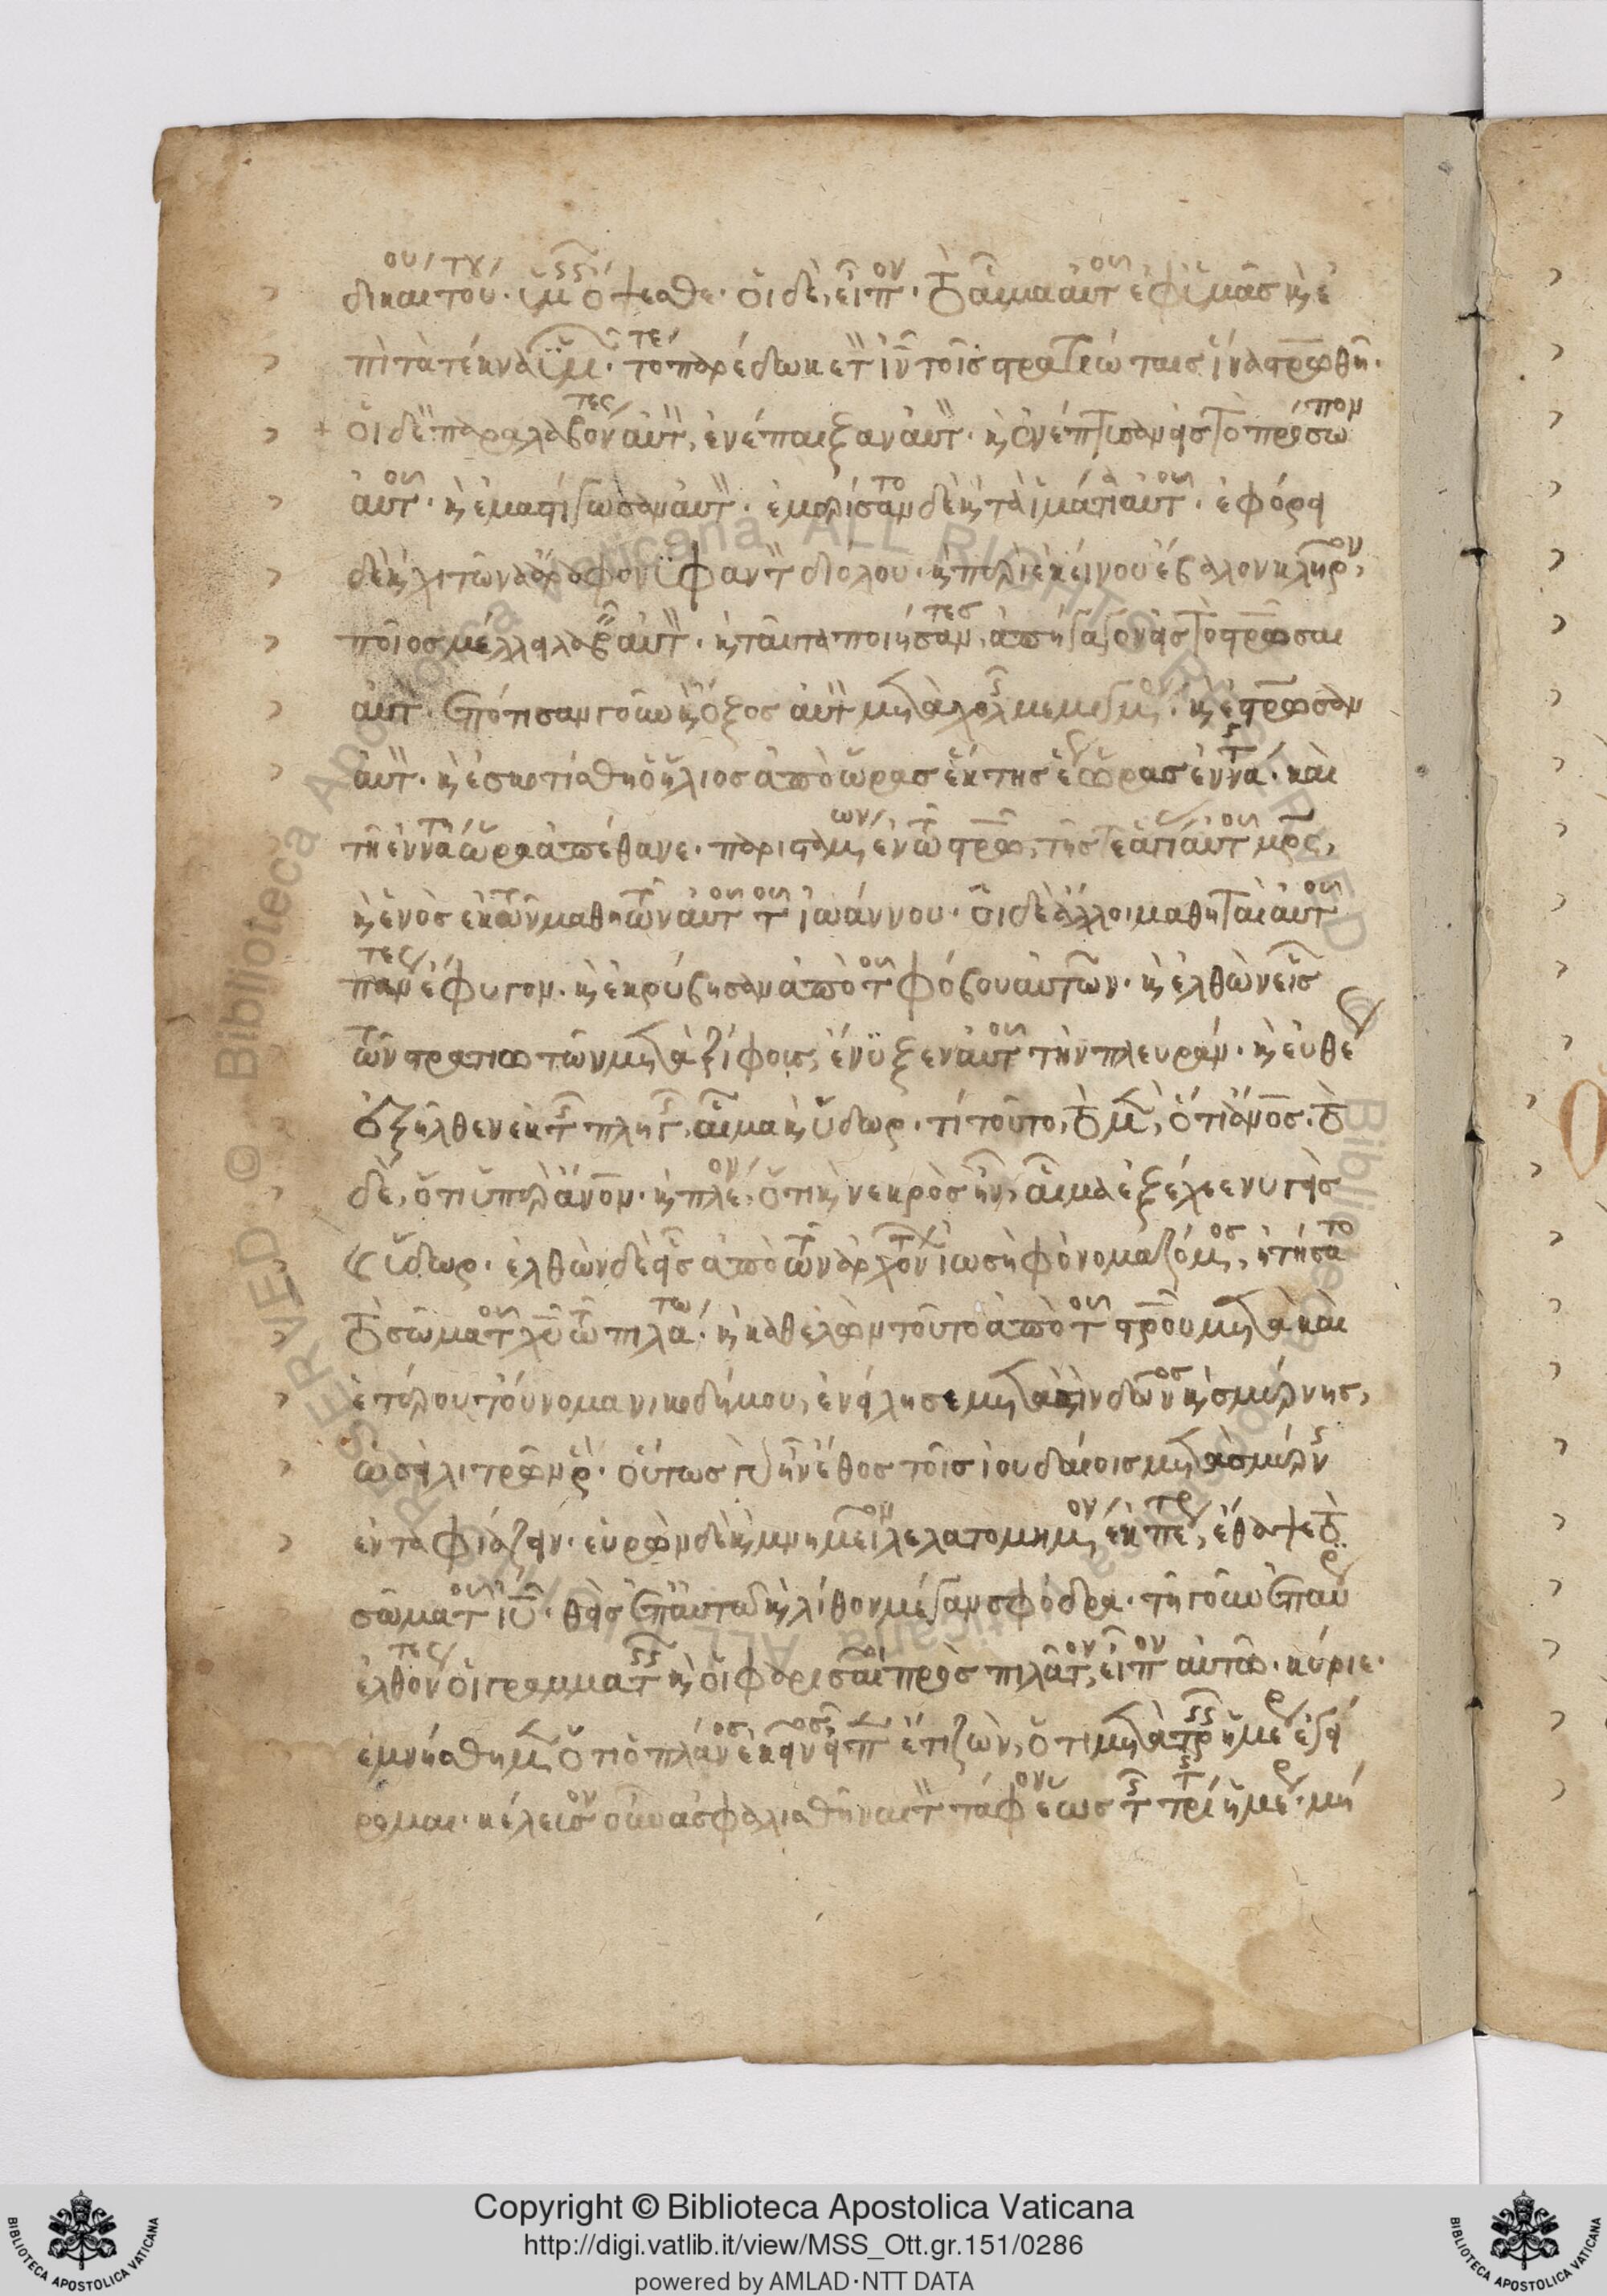 δικαι τούτου· ὑμεῖς ὄψεσθε· οἱ δὲ, εἶπον· τὸ αἷμα αὐτοῦ ἐφ ἡμᾶς κ ἐ
πὶ τὰ τέκνα ἡμῶν· τότε παρέδωκε τὸν ἰν τοῖς στρατιώταις ἵνα στρωθῆ·
οἱ δὲ παραλαβόντες αὐτὸν, ἐνέπαιξαν αὐτὸν· κ ἐνέπτισαν εἰς τὸ πρόσωπον
αὐτοῦ· κ ἐμαστίγωσαν αὐτὸν· ἐμερίσαντο δὲ κ τὰ ἱμάτια αὐτοῦ· ἐφόρει
δὲ κ χιτῶνα ἄραφον ὑφαντὸν διόλου· κ περὶ ἐκείνου ἔβαλον κλῆρον,
ποῖος μέλλει λαβεῖν αὐτὸν· κ ταῦτα ποιήσαντες, ἀπήγαγον εἰς τὸ στρῶσαι
αὐτὸν· ἐπότισαν γοῦν κ ὄξος αὐτὸν μετὰ χολῆς μεμιγμένον· κ ἐστρωσαν
αὐτὸν· κ ἐσκοτίσθη ὁ ἥλιος ἀπὸ ὥρας ἕκτης ἕως ὥρας ἐννάτης· καὶ
τῆ ἐννάτη ὥρα ἀπέθανε· παρισταμένων ἐν τῶ στρω, τῆς τε ἁγίας αὐτοῦ μρς,
κ ἑνὸς ἐκ τῶν μαθητῶν αὐτοῦ τοῦ ἰωάννου· οἱ δὲ ἄλλοι μαθηταὶ αὐτοῦ
πάντες ἔφυγον· κ ἐκρύβησαν ἀπὸ τοῦ φόβου αὐτῶν· κ ἐλθὼν εἷς
τῶν στρατιωτῶν μετὰ ξίφους, ἔνυξεν αὐτοῦ τὴν πλευράν· κ εὐθὲ
ἐξῆλθεν ἐκ τῆς πληγῆς, αἷμα κ ὕδωρ· τί τοῦτο, τὸ μὲν, ὅτι ανος· τὸ
δὲ, ὅτι ὑπὲρ ανον· κ πλέον, ὅτι κ νεκρὸς ἦν, αἷμα ἐξέχεεν ὑγιὲς
κ ὕδωρ· ἐλθὼν δὲ εἷς ἀπὸ τῶν ἀρχόντων ἰωσὴφ ὀνομαζόμενος, ἠτήσατο
τὸ σῶμα τοῦ χυ τῶ πιλάτω· κ καθελὼν τοῦτο ἀπὸ τοῦ στρου μετὰ καὶ
ἑτέρου τοὔνομα νικοδήμου, ἐνείλησε μετὰ σινδῶνος κ σμύρνης,
ὡσεὶ λιτρῶν ρ· οὕτως γὰρ ἦν ἔθος τοῖς ἰουδαίοις μετὰ σμύρνης
ἐνταφιάζειν· εὑρὼν δὲ κ μνημεῖον λελατομημένον ἐκ πέτρας, ἔθαψε τὸ
σῶμα τοῦ ιυ· θεὶς ἐπάνω κ λίθον μέγαν σφόδρα· τῆ γοῦν ἐπαύ
ἐλθόντες οἱ γραμματεῖς κ οἱ φαρισαῖοι πρὸς πιλάτον, εἶπον αὐτῶ· κύριε·
ἐμνήσθημεν ὅτι ὁ πλάνος ἐκεῖνος εἶπεν ἔτι ζῶν, ὅτι μετὰ τρεῖς ἡμέρας ἐγεί
ρομαι· κέλευσον οὖν ἀσφαλισθῆναι τὸν τάφον ἕως τῆς τρίτης ἡμέρας· μή